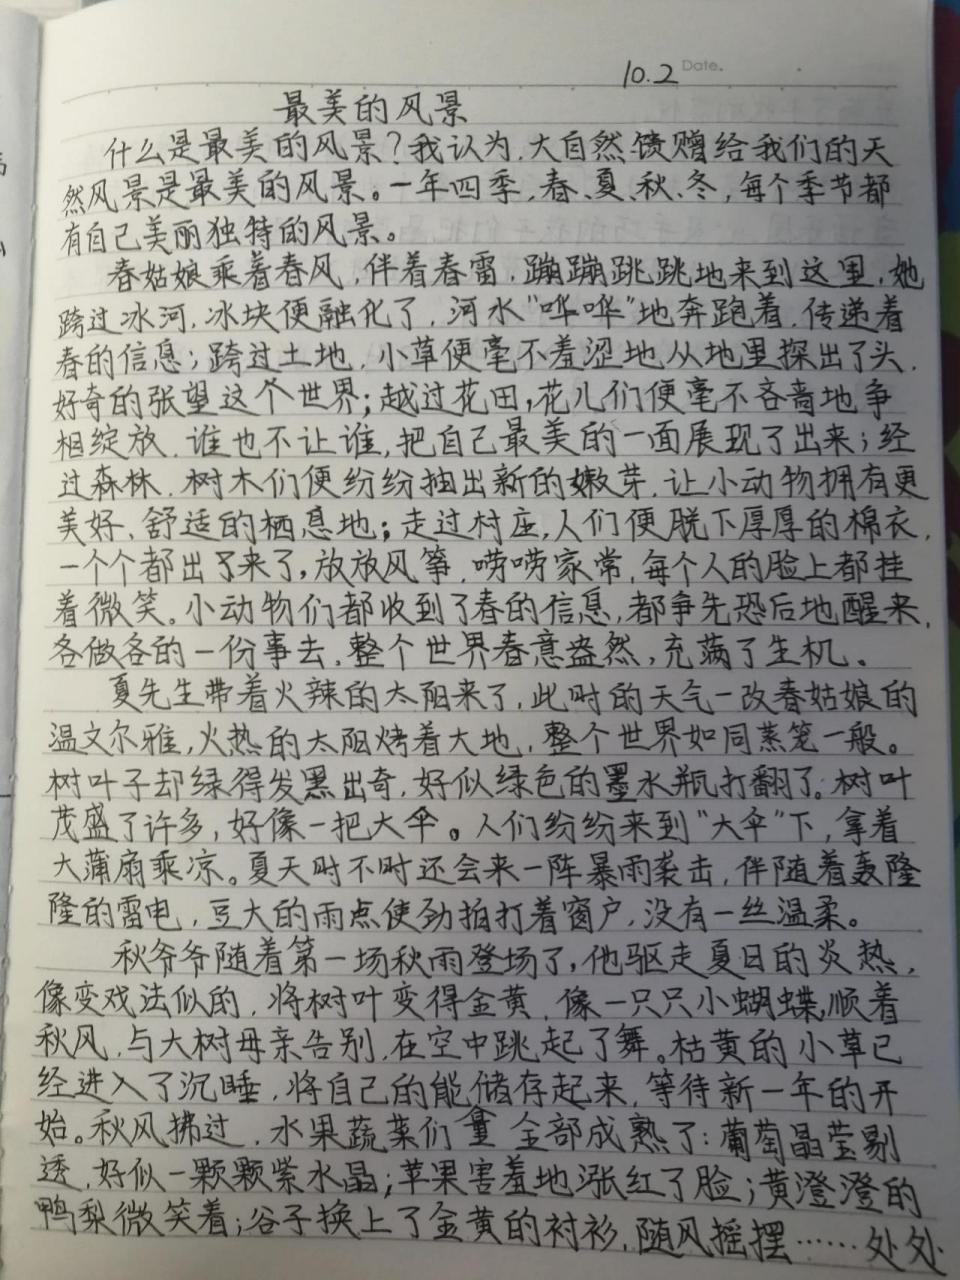 10.2 Date.
最美的风景
什么是最美的风景?我认为,大自然馈赠给我们的天
然风景是最美的风景。一年四季,春、夏、秋、冬,每个季节都
有自己美丽独特的风景。
春姑娘乘着春风,伴着春雷,蹦蹦跳跳地来到这里,她
跨过冰河,冰块便融化了,河水"哗哗"地奔跑着,传递着
春的信息;跨过土地,小草便毫不羞涩地从地里探出了头,
好奇的张望这个世界;越过花田,花儿们便毫不吝啬地争
相绽放,谁也不让谁,把自己最美的一面展现了出来;经
过森林,树木们便纷纷抽出新的嫩芽,让小动物拥有更
美好、舒适的栖息地;走过村庄,人们便脱下厚厚的棉衣,
一个个都出了来了,放放风筝,唠唠家常,每个人的脸上都挂
着微笑。小动物们都收到了春的信息,都争先恐后地醒来,
各做各的一份事去,整个世界春意盎然,充满了生机。
夏先生带着火辣的太阳来了,此时的天气一改春姑娘的
温文尔雅,火热的太阳烤着大地,整个世界如同蒸笼一般。
树叶子却绿得发黑出奇,好似绿色的墨水瓶打翻了。树叶
茂盛了许多,好像一把大伞。人们纷纷来到"大伞"下,拿着
大蒲扇乘凉。夏天时不时还会来一阵暴雨袭击,伴随着轰隆
隆的雷电,豆大的雨点使劲拍打着窗户,没有一丝温柔。
秋爷爷随着第一场秋雨登场了,他驱走夏日的炎热,
像变戏法似的,将树叶变得金黄,像一只只小蝴蝶,顺着
秋风,与大树母亲告别,在空中跳起了舞。枯黄的小草已
经进入了沉睡,将自己的能储存起来,等待新一年的开
始。秋风拂过,水果蔬菜们全部成熟了:葡萄晶莹剔
透,好似一颗颗紫水晶;苹果害羞地涨红了脸;黄澄澄的
鸭梨微笑着;谷子换上了金黄的衬衫,随风摇摆……处处